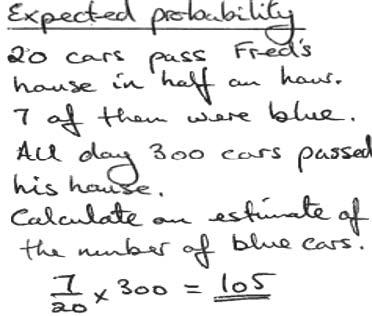 Expected probability
20 cars pass Fred's
house in half an hour.
7 of them were blue.
All day 300 cars passed
his house.
Calculate an estimate of
the number of blue cars.
7/20 × 300 = 105